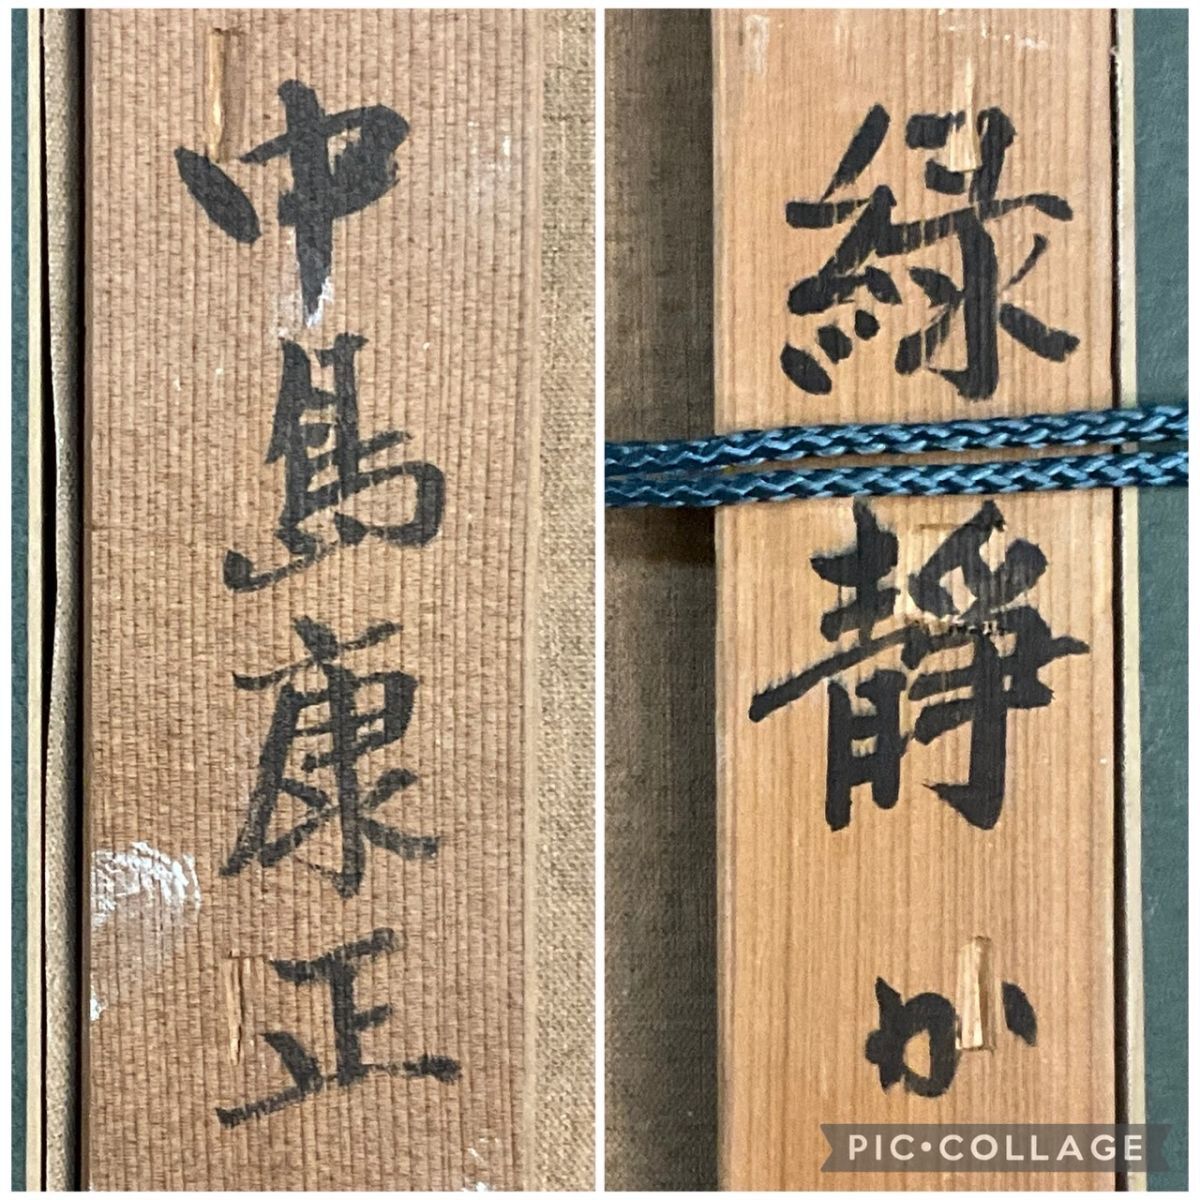 中島康正
緑静か
PIC•COLLAGE